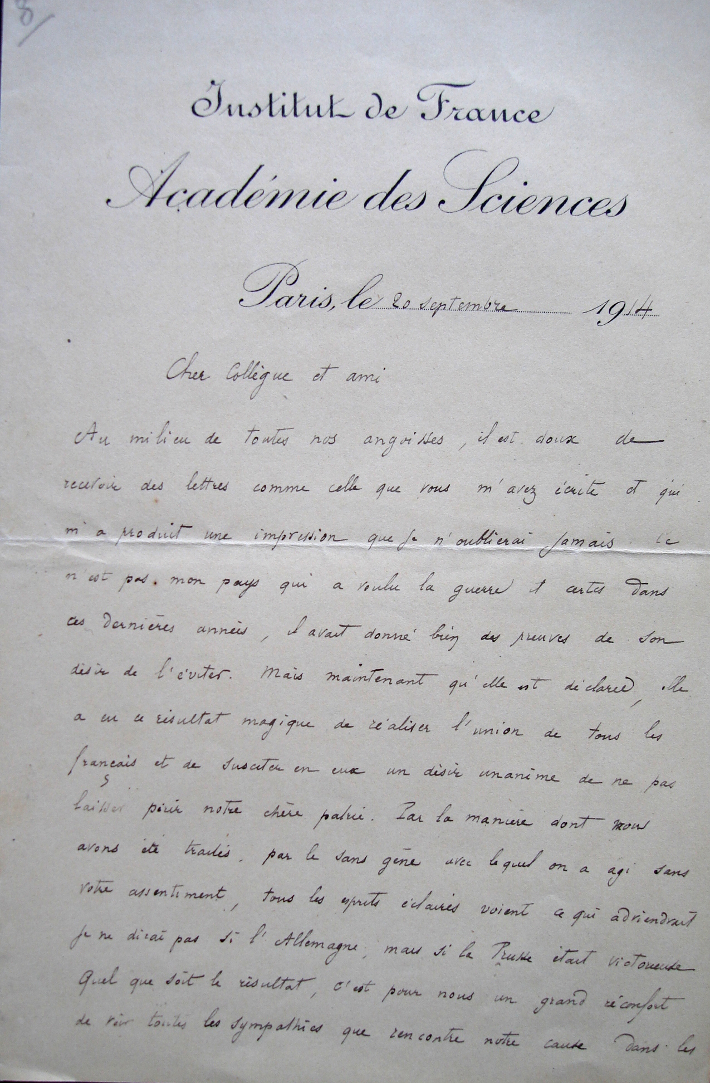 8
Institut de France
Académie des Sciences
Paris, le 20 septembre 1914
Cher Collègue et ami
Au milieu de toutes nos angoisses, il est doux de
recevoir des lettres comme celle que vous m'avez écrite et qui
m'a produit une impression que je n'oublierai jamais. Ce
n'est pas mon pays qui a voulu la guerre et certes dans
ces dernières années, il avait donné bien des preuves de son
désir de l'éviter. Mais maintenant qu'elle est déclarée, elle
a eu ce résultat magique de réaliser l'union de tous les
français et de susciter en eux un désir unanime de ne pas
laisser périr notre chère patrie. Par la manière dont vous
avons été traités, par le sans gêne avec lequel on a agi sans
votre assentiment, tous les esprits éclairés voient ce qui adviendrait
je ne dirai pas si l'Allemagne, mais si la Prusse était victorieuse
Quel que soit le résultat, c'est pour nous un grand réconfort
de voir toutes les sympathies que rencontre notre cause dans les